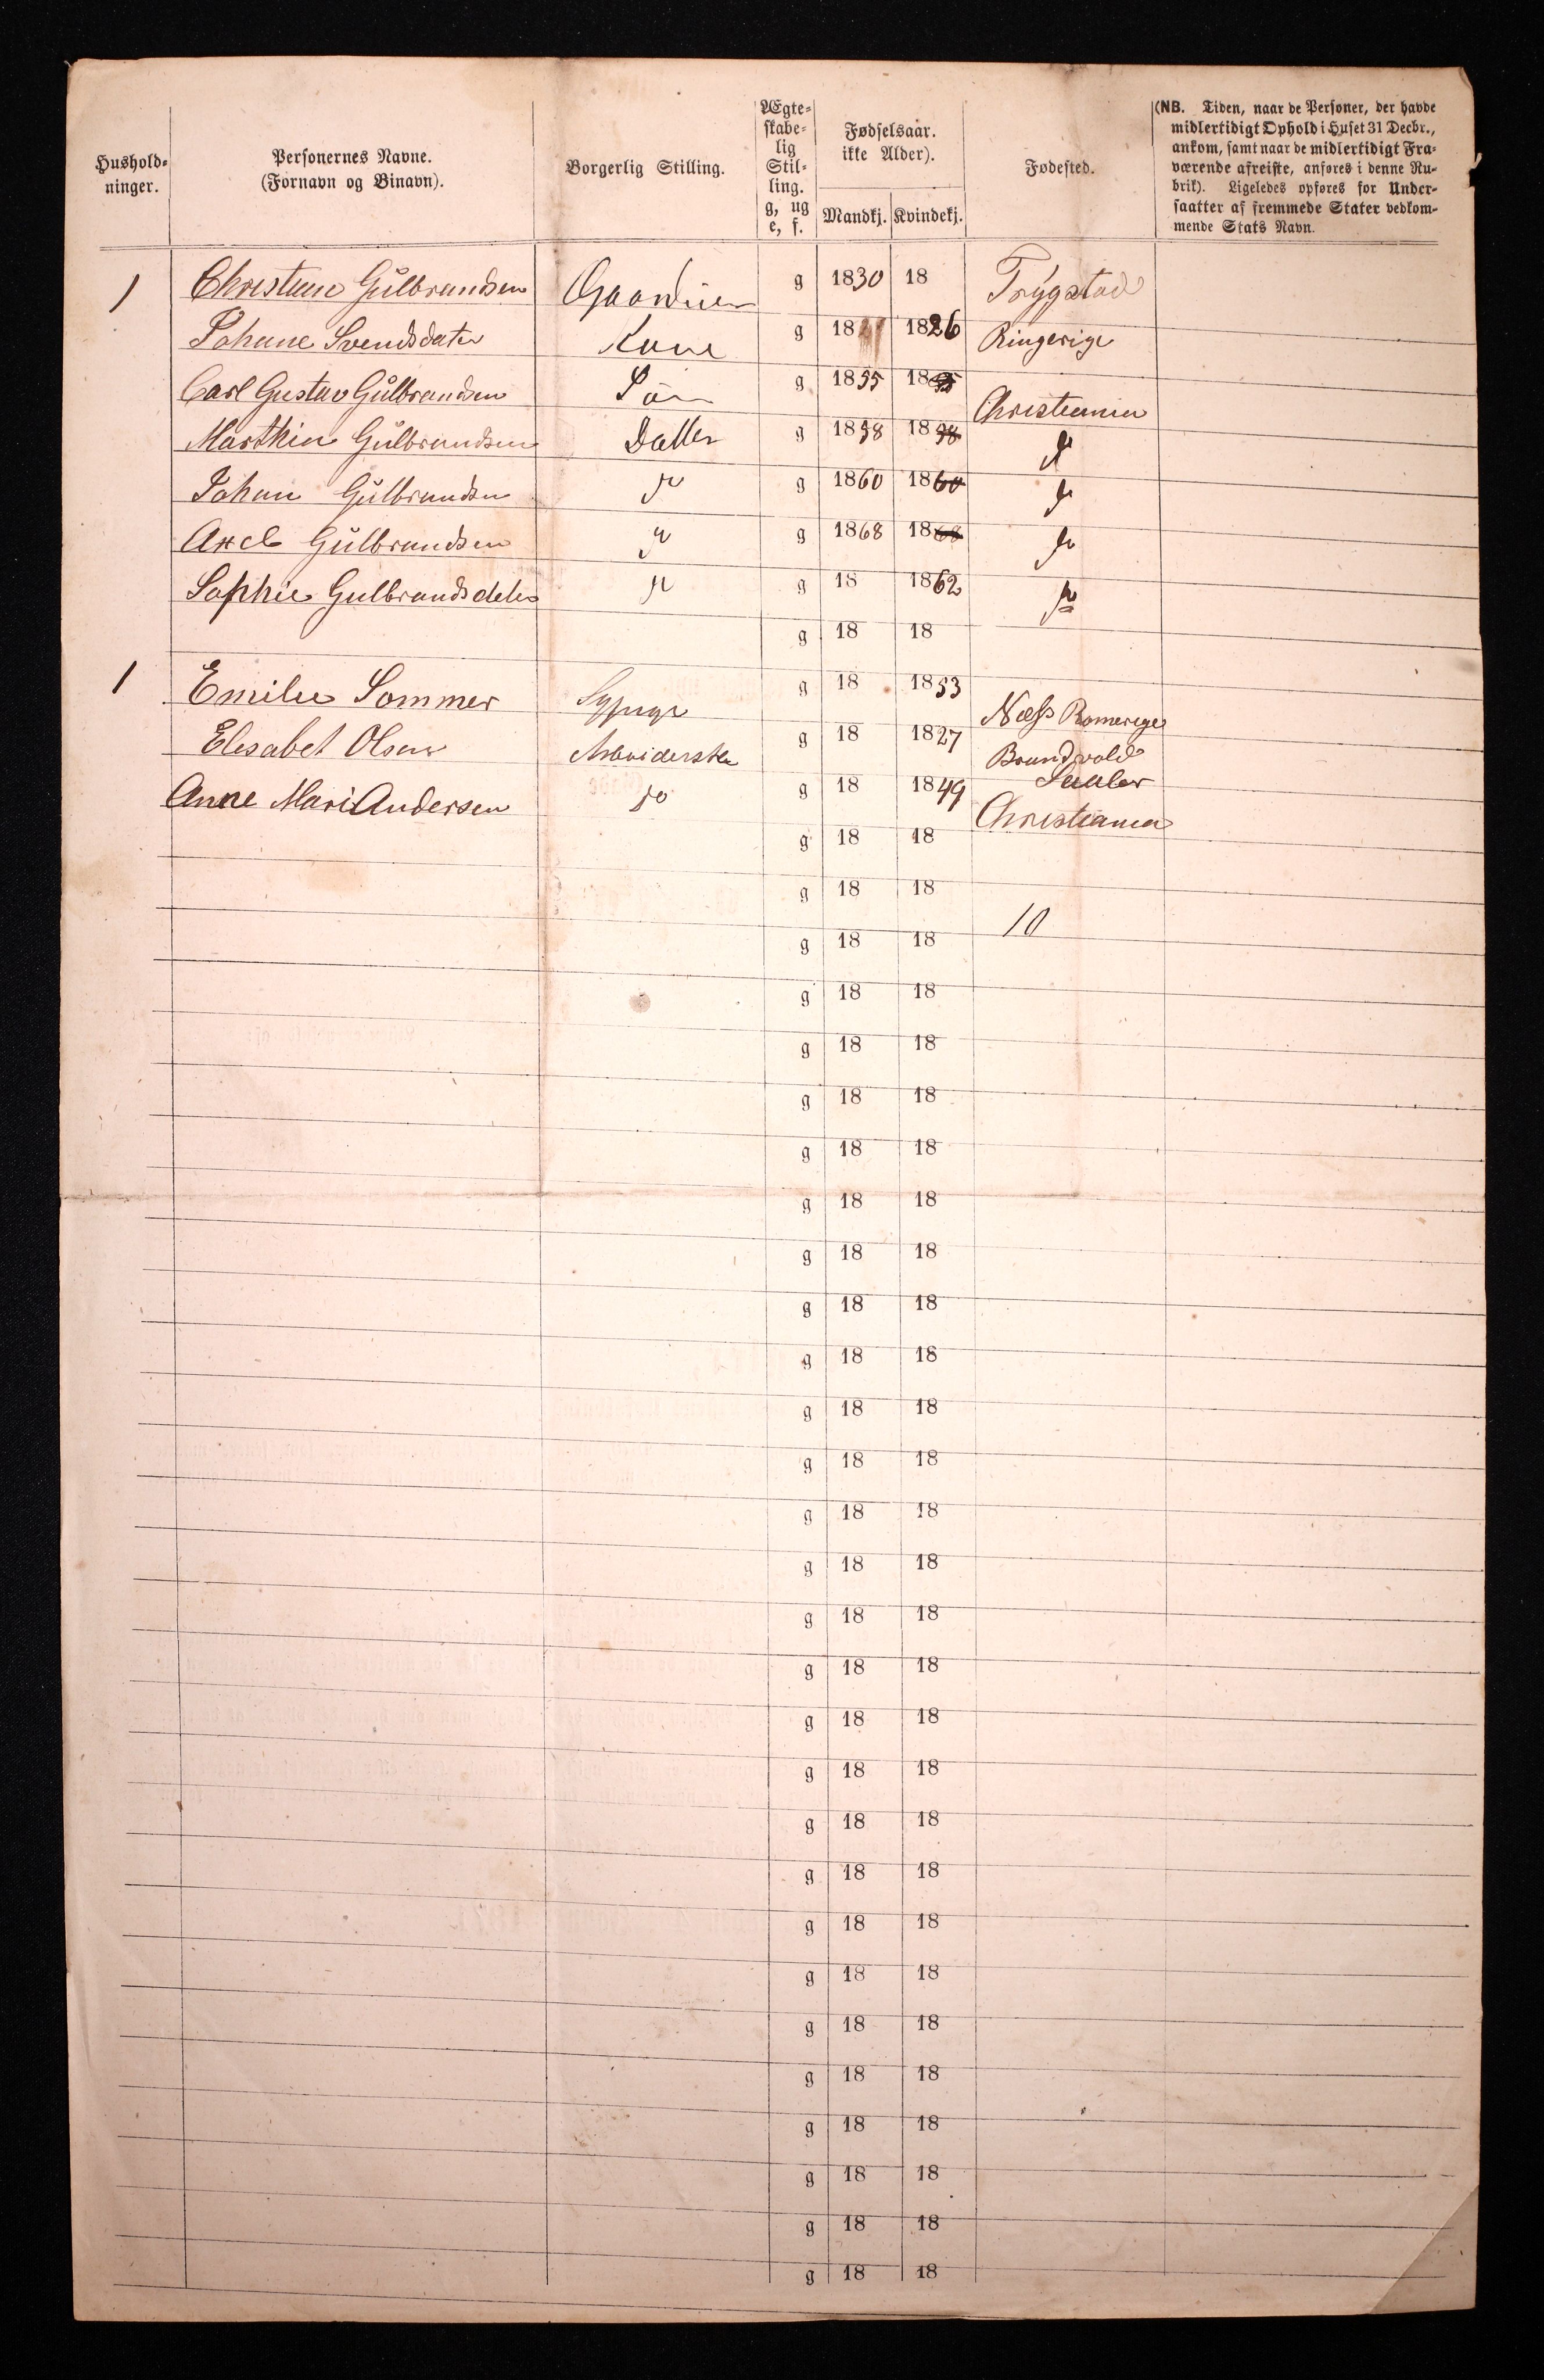 Hushold-
ninger.
Personernes Navne.
(Fornavn og Binavn).
Borgerlig Stilling.
Ægte-
skabe-
lig
Stil-
ling.
g, ug
e, f.
Fødselsaar.
ikke Alder).
Mandkj. Kvindekj.
Fødested.
(NB. Tiden, naar de Personer, der havde
midlertidigt Ophold i Huset 31 Decbr.,
ankom, samt naar de midlertidigt Fra-
værende afreiste, anføres i denne Ru-
brik). Ligeledes opføres for Under-
saatter af fremmede Stater vedkom-
mende Stats Navn.
1 Christian Gulbrandsen g 1830 18 Trygstad
Johane Svendsdater Kone g 18 1826 Ringerige
Carl Gustav Gulbrandsen Søn g 1855 1855 Christiania
Marthin Gulbrandsen g 1858 1858 do
Johan Gulbrandsen do g 1860 1860 do
Axel Gulbrandsen do g 1868 1868 do
Sophie Gulbrandsdeter do g 18 1862 do
g 18 18
1 Emilie Sommer Sypige g 18 1853 Næss Romerige
Elisabet Olsen g 18 1827 Brandvold
Anne Mari Andersen do g 18 1849 Christiania
g 18 18
g 18 18
10
g 18 18
g 18 18
g 18 18
g 18 18
g 18 18
g 18 18
g 18 18
g 18 18
g 18 18
g 18 18
g 18 18
g 18 18
g 18 18
g 18 18
g 18 18
g 18 18
g 18 18
g 18 18
g 18 18
g 18 18
g 18 18
g 18 18
g 18 18
g 18 18
g 18 18
g 18 18
g 18 18